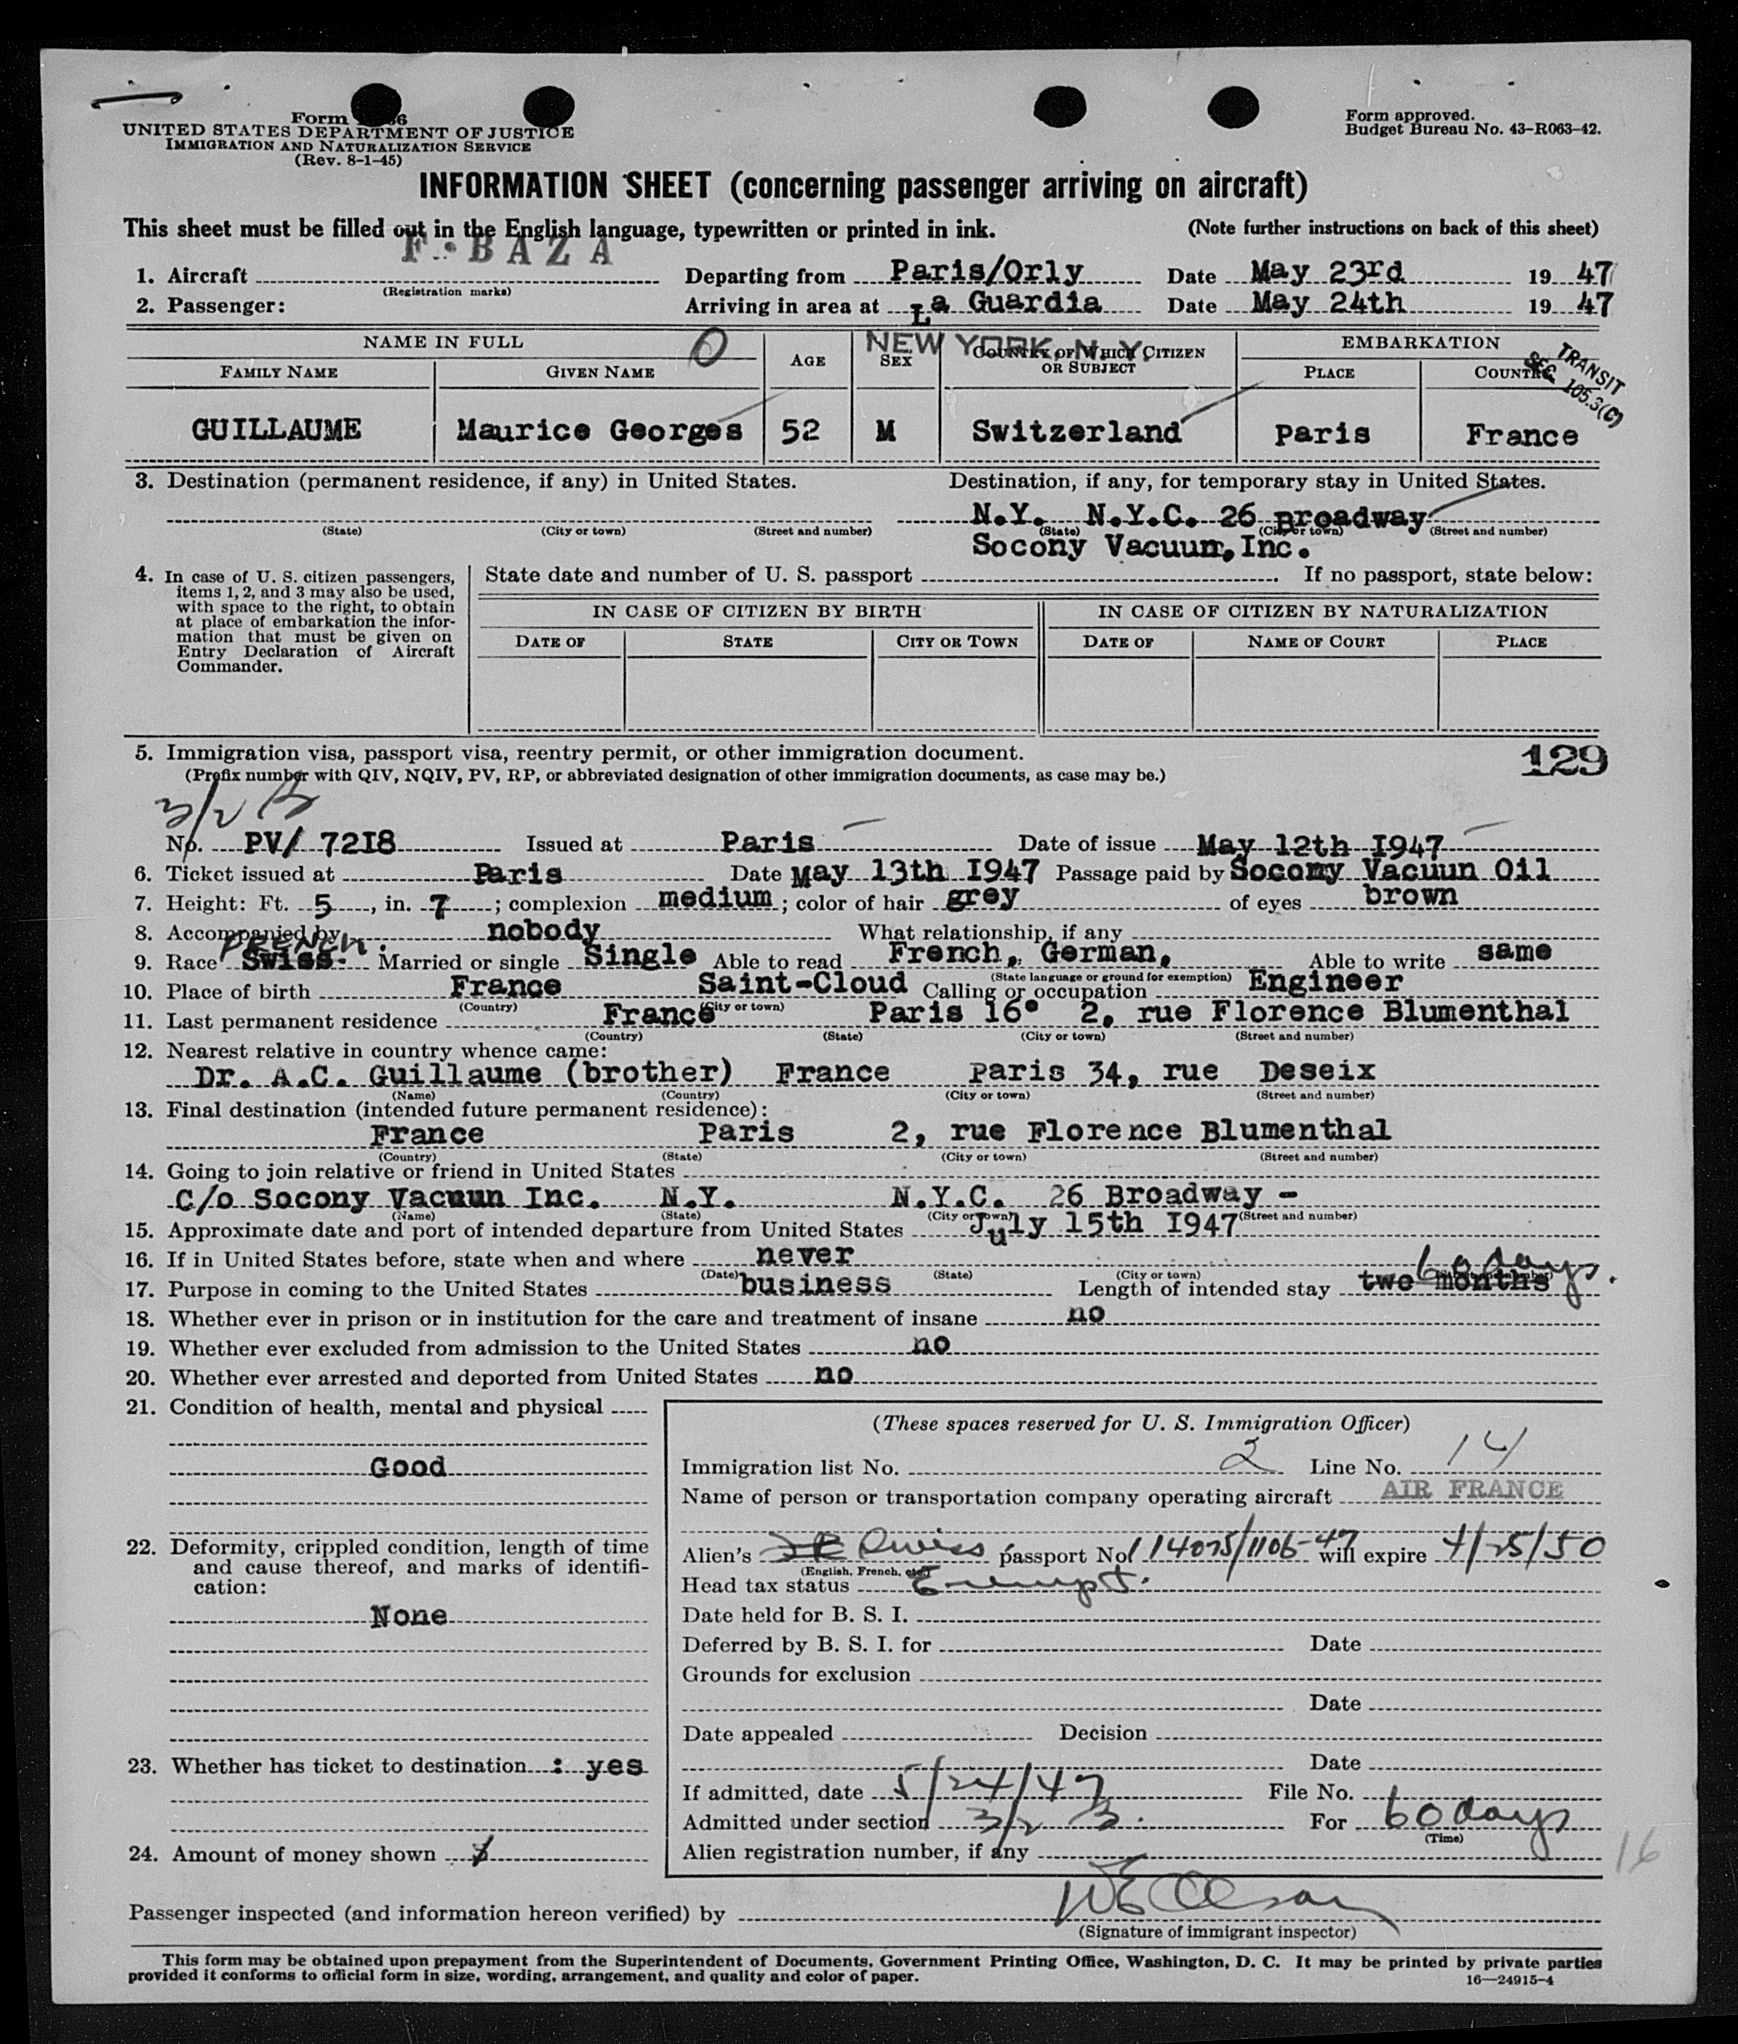 Form
UNITED STATES DEPARTMENT OF JUSTICE
IMMIGRATION AND NATURALIZATION SERVICE
(Rev. 8-1-45)
Form approved.
Budget Bureau No. 43-R063-42.
INFORMATION SHEET (concerning passenger arriving on aircraft)
This sheet must be filled out in the English language, typewritten or printed in ink. (Note further instructions on back of this sheet)
F-BAZA
1. Aircraft Departing from Paris/Orly Date May 23rd 1947
(Registration marks)
2. Passenger: Arriving in area at La Guardia Date May 24th 1947
NEW YORK, N. Y.
NAME IN FULL 0 AGE SEX COUNTRY OF WHICH CITIZEN OR SUBJECT EMBARKATION
FAMILY NAME GIVEN NAME PLACE COUNTRY
TRANSIT
SEC. 105.3(C)
GUILLAUME Maurice Georges 52 M Switzerland Paris France
3. Destination (permanent residence, if any) in United States. Destination, if any, for temporary stay in United States.
N.Y. N.Y.C. 26 Broadway
(State) (City or town) (Street and number) (State) (City or town) (Street and number)
Socony Vacuum, Inc.
4. In case of U. S. citizen passengers, items 1, 2, and 3 may also be used, with space to the right, to obtain at place of embarkation the information that must be given on Entry Declaration of Aircraft Commander.
State date and number of U. S. passport . If no passport, state below:
IN CASE OF CITIZEN BY BIRTH IN CASE OF CITIZEN BY NATURALIZATION
DATE OF STATE CITY OR TOWN DATE OF NAME OF COURT PLACE
5. Immigration visa, passport visa, reentry permit, or other immigration document. 129
(Prefix number with QIV, NQIV, PV, RP, or abbreviated designation of other immigration documents, as case may be.)
3/2
No. PV/ 72I8 Issued at Paris Date of issue May 12th I947
6. Ticket issued at Paris Date May 13th I947 Passage paid by Socony Vacuun Oil
7. Height: Ft. 5, in. 7; complexion medium; color of hair grey of eyes brown
8. Accompanied by nobody What relationship, if any
FRENCH.
9. Race Swiss. Married or single Single Able to read French, German, Able to write same
(State language or ground for exemption)
10. Place of birth France Saint-Cloud Calling or occupation Engineer
(Country) (City or town)
11. Last permanent residence France Paris 16° 2, rue Florence Blumenthal
(Country) (State) (City or town) (Street and number)
12. Nearest relative in country whence came:
Dr. A.C. Guillaume (brother) France Paris 34, rue Deseix
(Name) (Country) (City or town) (Street and number)
13. Final destination (intended future permanent residence):
France Paris 2, rue Florence Blumenthal
(Country) (State) (City or town) (Street and number)
14. Going to join relative or friend in United States
C/o Socony Vacuun Inc. N.Y. N.Y.C. 26 Broadway -
(Name) (State) (City or town) (Street and number)
15. Approximate date and port of intended departure from United States July 15th I947
16. If in United States before, state when and where never
(Date) (State) (City or town)
60 days.
17. Purpose in coming to the United States business Length of intended stay two months
18. Whether ever in prison or in institution for the care and treatment of insane no
19. Whether ever excluded from admission to the United States no
20. Whether ever arrested and deported from United States no
21. Condition of health, mental and physical
Good
22. Deformity, crippled condition, length of time and cause thereof, and marks of identification:
None
23. Whether has ticket to destination : yes
24. Amount of money shown
(These spaces reserved for U. S. Immigration Officer)
Immigration list No. 2 Line No. 14
Name of person or transportation company operating aircraft AIR FRANCE
Alien's Swiss passport No. 14075/1106-47 will expire 4/25/50
(English, French, etc.)
Head tax status Exempt.
Date held for B. S. I.
Deferred by B. S. I. for Date
Grounds for exclusion
Date
Date appealed Decision
Date
If admitted, date 5/24/47 File No.
Admitted under section 3/2 B. For 60 days
(Time)
Alien registration number, if any
16
Passenger inspected (and information hereon verified) by
(Signature of immigrant inspector)
This form may be obtained upon prepayment from the Superintendent of Documents, Government Printing Office, Washington, D. C. It may be printed by private parties
provided it conforms to official form in size, wording, arrangement, and quality and color of paper.
16—24915-4